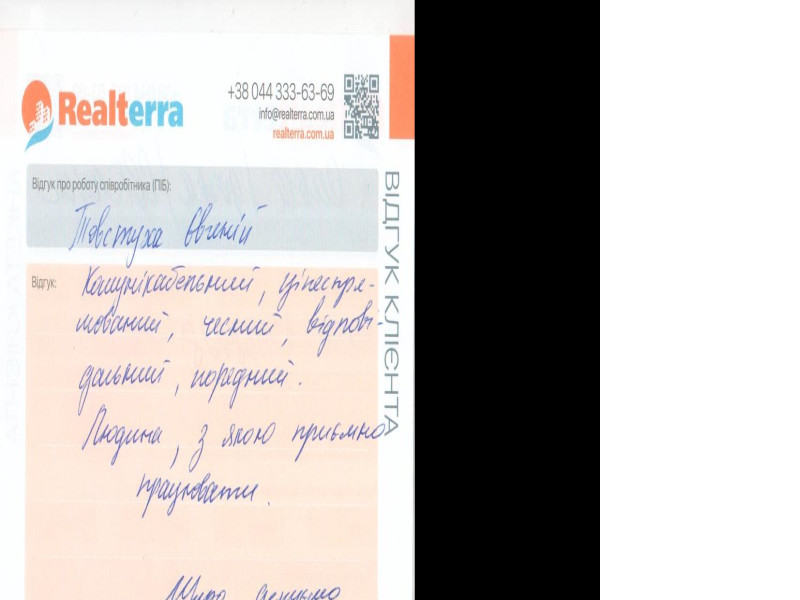 Realterra
+38 044 333-63-69
info@realterra.com.ua
realterra.com.ua
ВІДГУК КЛІЄНТА
Відгук про роботу співробітника (ПІБ):
Товстуха Євгеній
Відгук:
Комунікабельний, цілеспря-
мований, чесний, відпові-
дальний, порядний.
Людина, з якою приємно
працювати.
Щиро дякуємо